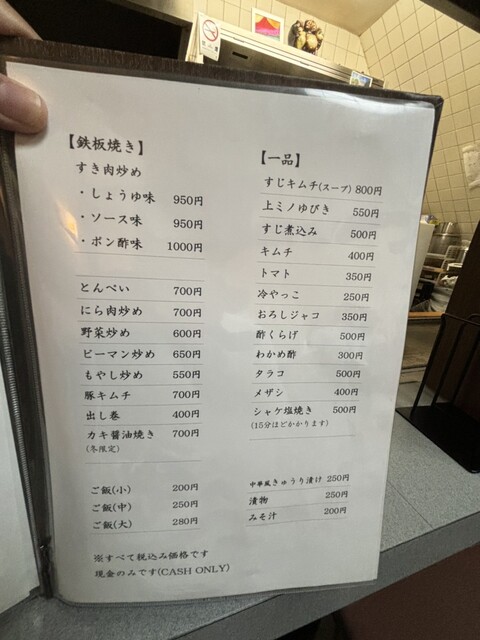 【鉄板焼き】
すき肉炒め
・しょうゆ味 950円
・ソース味 950円
・ポン酢味 1000円
とんぺい 700円
にら肉炒め 700円
野菜炒め 600円
ピーマン炒め 650円
もやし炒め 550円
豚キムチ 700円
出し巻 400円
カキ醤油焼き 700円
(冬限定)
ご飯(小) 200円
ご飯(中) 250円
ご飯(大) 280円
※すべて税込み価格です
現金のみです(CASH ONLY)
【一品】
すじキムチ(スープ) 800円
上ミノゆびき 550円
すじ煮込み 500円
キムチ 400円
トマト 350円
冷やっこ 250円
おろしジャコ 350円
酢くらげ 500円
わかめ酢 300円
タラコ 500円
メザシ 400円
シャケ塩焼き 500円
(15分ほどかかります)
中華風きゅうり漬け 250円
漬物 250円
みそ汁 200円